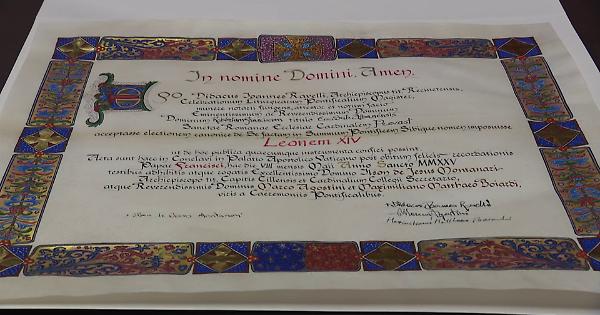 In nomine Domini. Amen.
EGO Didacus Ioannes Ravelli, Archiepiscopus tit. Recinetensis,
Celebrationum Liturgicarum Pontificalium Magister,
munere notarii fungens, attestor et notum facio
Eminentissimum ac Reverendissimum Dominum
Dominum
Sanctae Romanae Ecclesiae Cardinalem Prevost
acceptasse electionem canonice de se factam in Summum Pontificem Sibique nomen imposuisse
Leonem XIV
ut de hac publica quaecumque instrumenta confici possint.
Acta sunt haec in Conclavi in Palatio Apostolico Vaticano post obitum felicis recordationis
Papae Francisci, hac die VIII mensis Maii, Anno Sancto MMXXV,
testibus adhibitis atque rogatis Excellentissimo Domino Ilson de Jesus Montanari
Archiepiscopo tit. Capitis Cillensis et Cardinalium Collegii Secretario,
atque Reverendissimis Dominis Marco Agostini et Maximiliano Matthaeo Boiardi,
viris a Caeremoniis Pontificalibus.